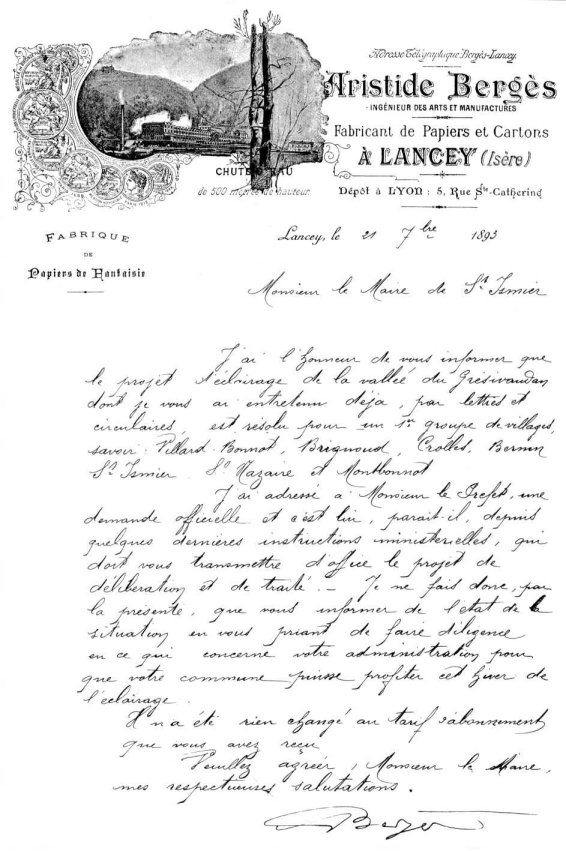 Adresse Télégraphique Bergès-Lancey.
Aristide Bergès
INGÉNIEUR DES ARTS ET MANUFACTURES
Fabricant de Papiers et Cartons
À LANCEY (Isère)
Dépôt à LYON : 5, Rue Ste-Catherine
CHUTE D'EAU
de 500 mètres de hauteur.
FABRIQUE
DE
Papiers de Fantaisie
Lancey, le 21 7bre 1893
Monsieur le Maire de St Ismier
J'ai l'honneur de vous informer que
le projet d'éclairage de la vallée du Grésivaudan
dont je vous ai entretenu déja, par lettres et
circulaires, est résolu pour un 1er groupe de villages,
savoir: Villard-Bonnot, Brignoud, Crolles, Bernin
St Ismier St Nazaire et Montbonnot
J'ai adressé à Monsieur le Préfet, une
demande officielle et c'est lui, parait-il, depuis
quelques dernières instructions ministerielles, qui
doit vous transmettre d'office le projet de
déliberation et de traité. — Je ne fais donc, par
la présente, que vous informer de l'état de la
situation en vous priant de faire diligence
en ce qui concerne votre administration pour
que votre commune puisse profiter cet hiver de
l'éclairage.
Il n'a été rien changé au tarif d'abonnement
que vous avez reçu
Veuillez agréer, Monsieur le Maire,
mes respectueuses salutations.
Bergès